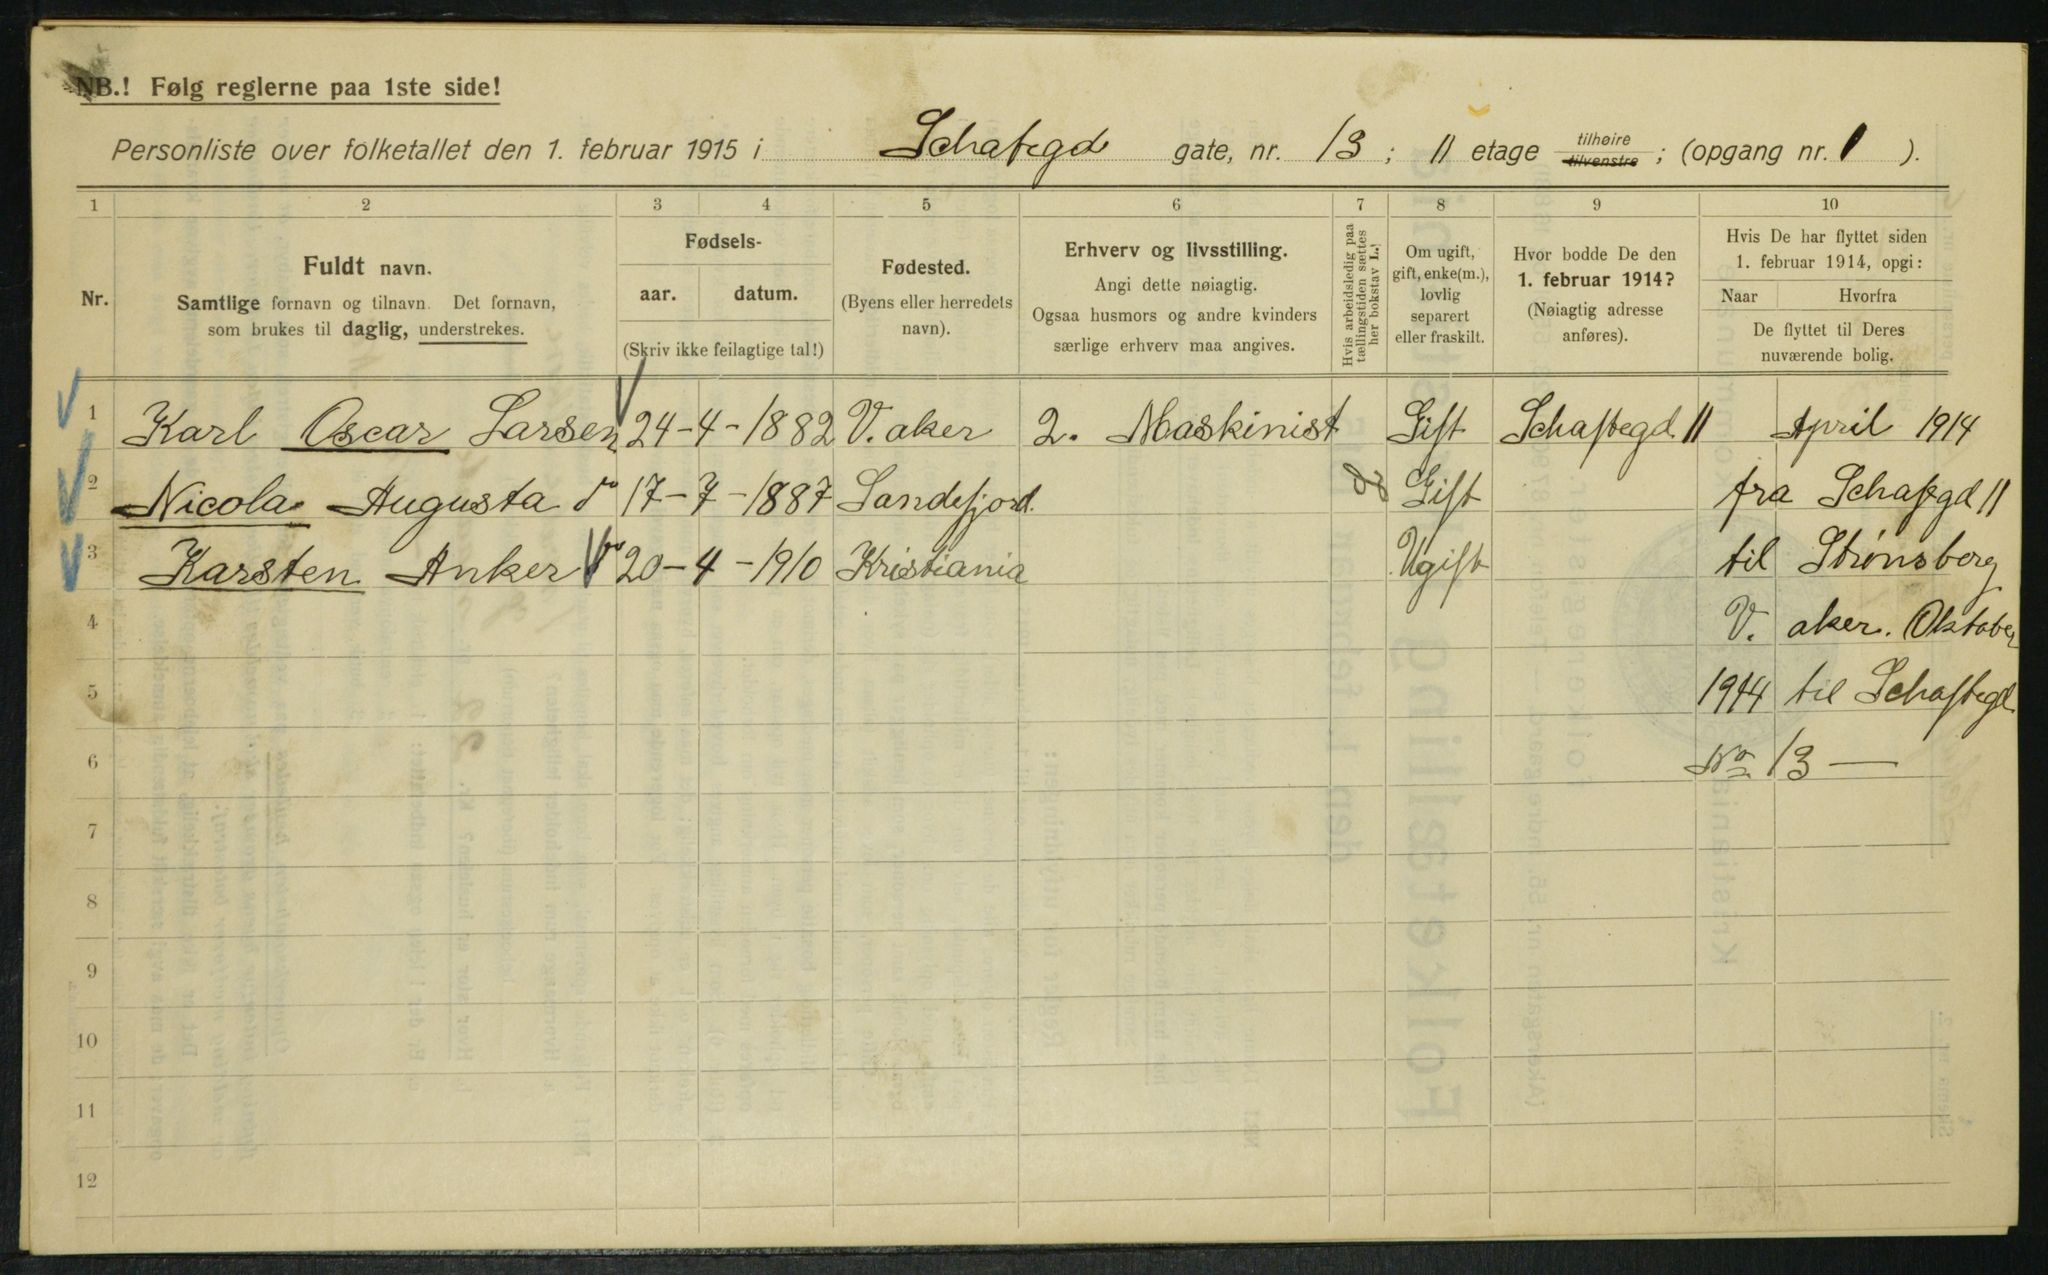 NB.! Følg reglerne paa 1ste side!
Personliste over folketallet den 1. februar 1915 i Schaftegd gate, nr. 13 ; II etage tilhøire tilvenstre ; (opgang nr. 1 ).
1 2 3 4 5 6 7 8 9 10
Nr.
Fuldt navn.
Samtlige fornavn og tilnavn. Det fornavn,
som brukes til daglig, understrekes.
Fødsels-
aar. datum.
(Skriv ikke feilagtige tal!)
Fødested.
(Byens eller herredets
navn).
Erhverv og livsstilling.
Angi dette nøiagtig.
Ogsaa husmors og andre kvinders
særlige erhverv maa angives.
Hvis arbeidsledig paa
tællingstiden sættes
her bokstav L.!
Om ugift,
gift, enke(m.),
lovlig
separert
eller fraskilt.
Hvor bodde De den
1. februar 1914?
(Nøiagtig adresse
anføres).
Hvis De har flyttet siden
1. februar 1914, opgi:
Naar Hvorfra
De flyttet til Deres
nuværende bolig.
1 Karl Oscar Larsen 24-4-1882 V. aker 2. Maskinist Gift Schaftegd 11 April 1914
2 Nicola Augusta do 17-7-1887 Sandefjord. Gift fra Schaftegd 11
3 Karsten Anker do 20-4-1910 Kristiania Ugift til Strønsberg
4 V. aker. Oktober
5 1914 til Schaftegd
6 No 13 —
7
8
9
10
11
12